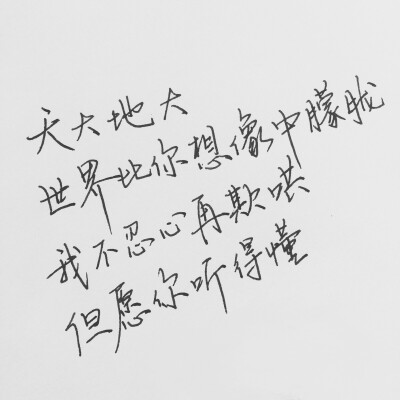 天大地大
世界比你想像中朦胧
我不忍心再欺哄
但愿你听得懂